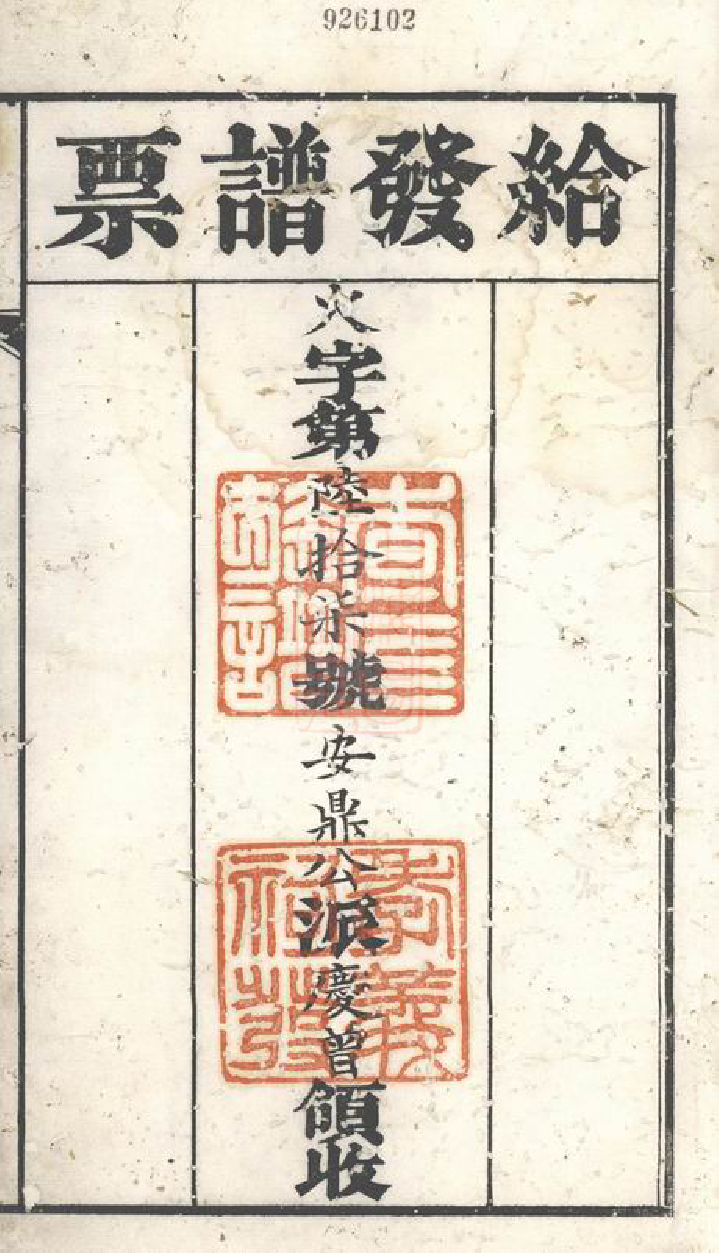 926102
給發譜票
火字第陸拾柒號安鼎公派慶曾領收